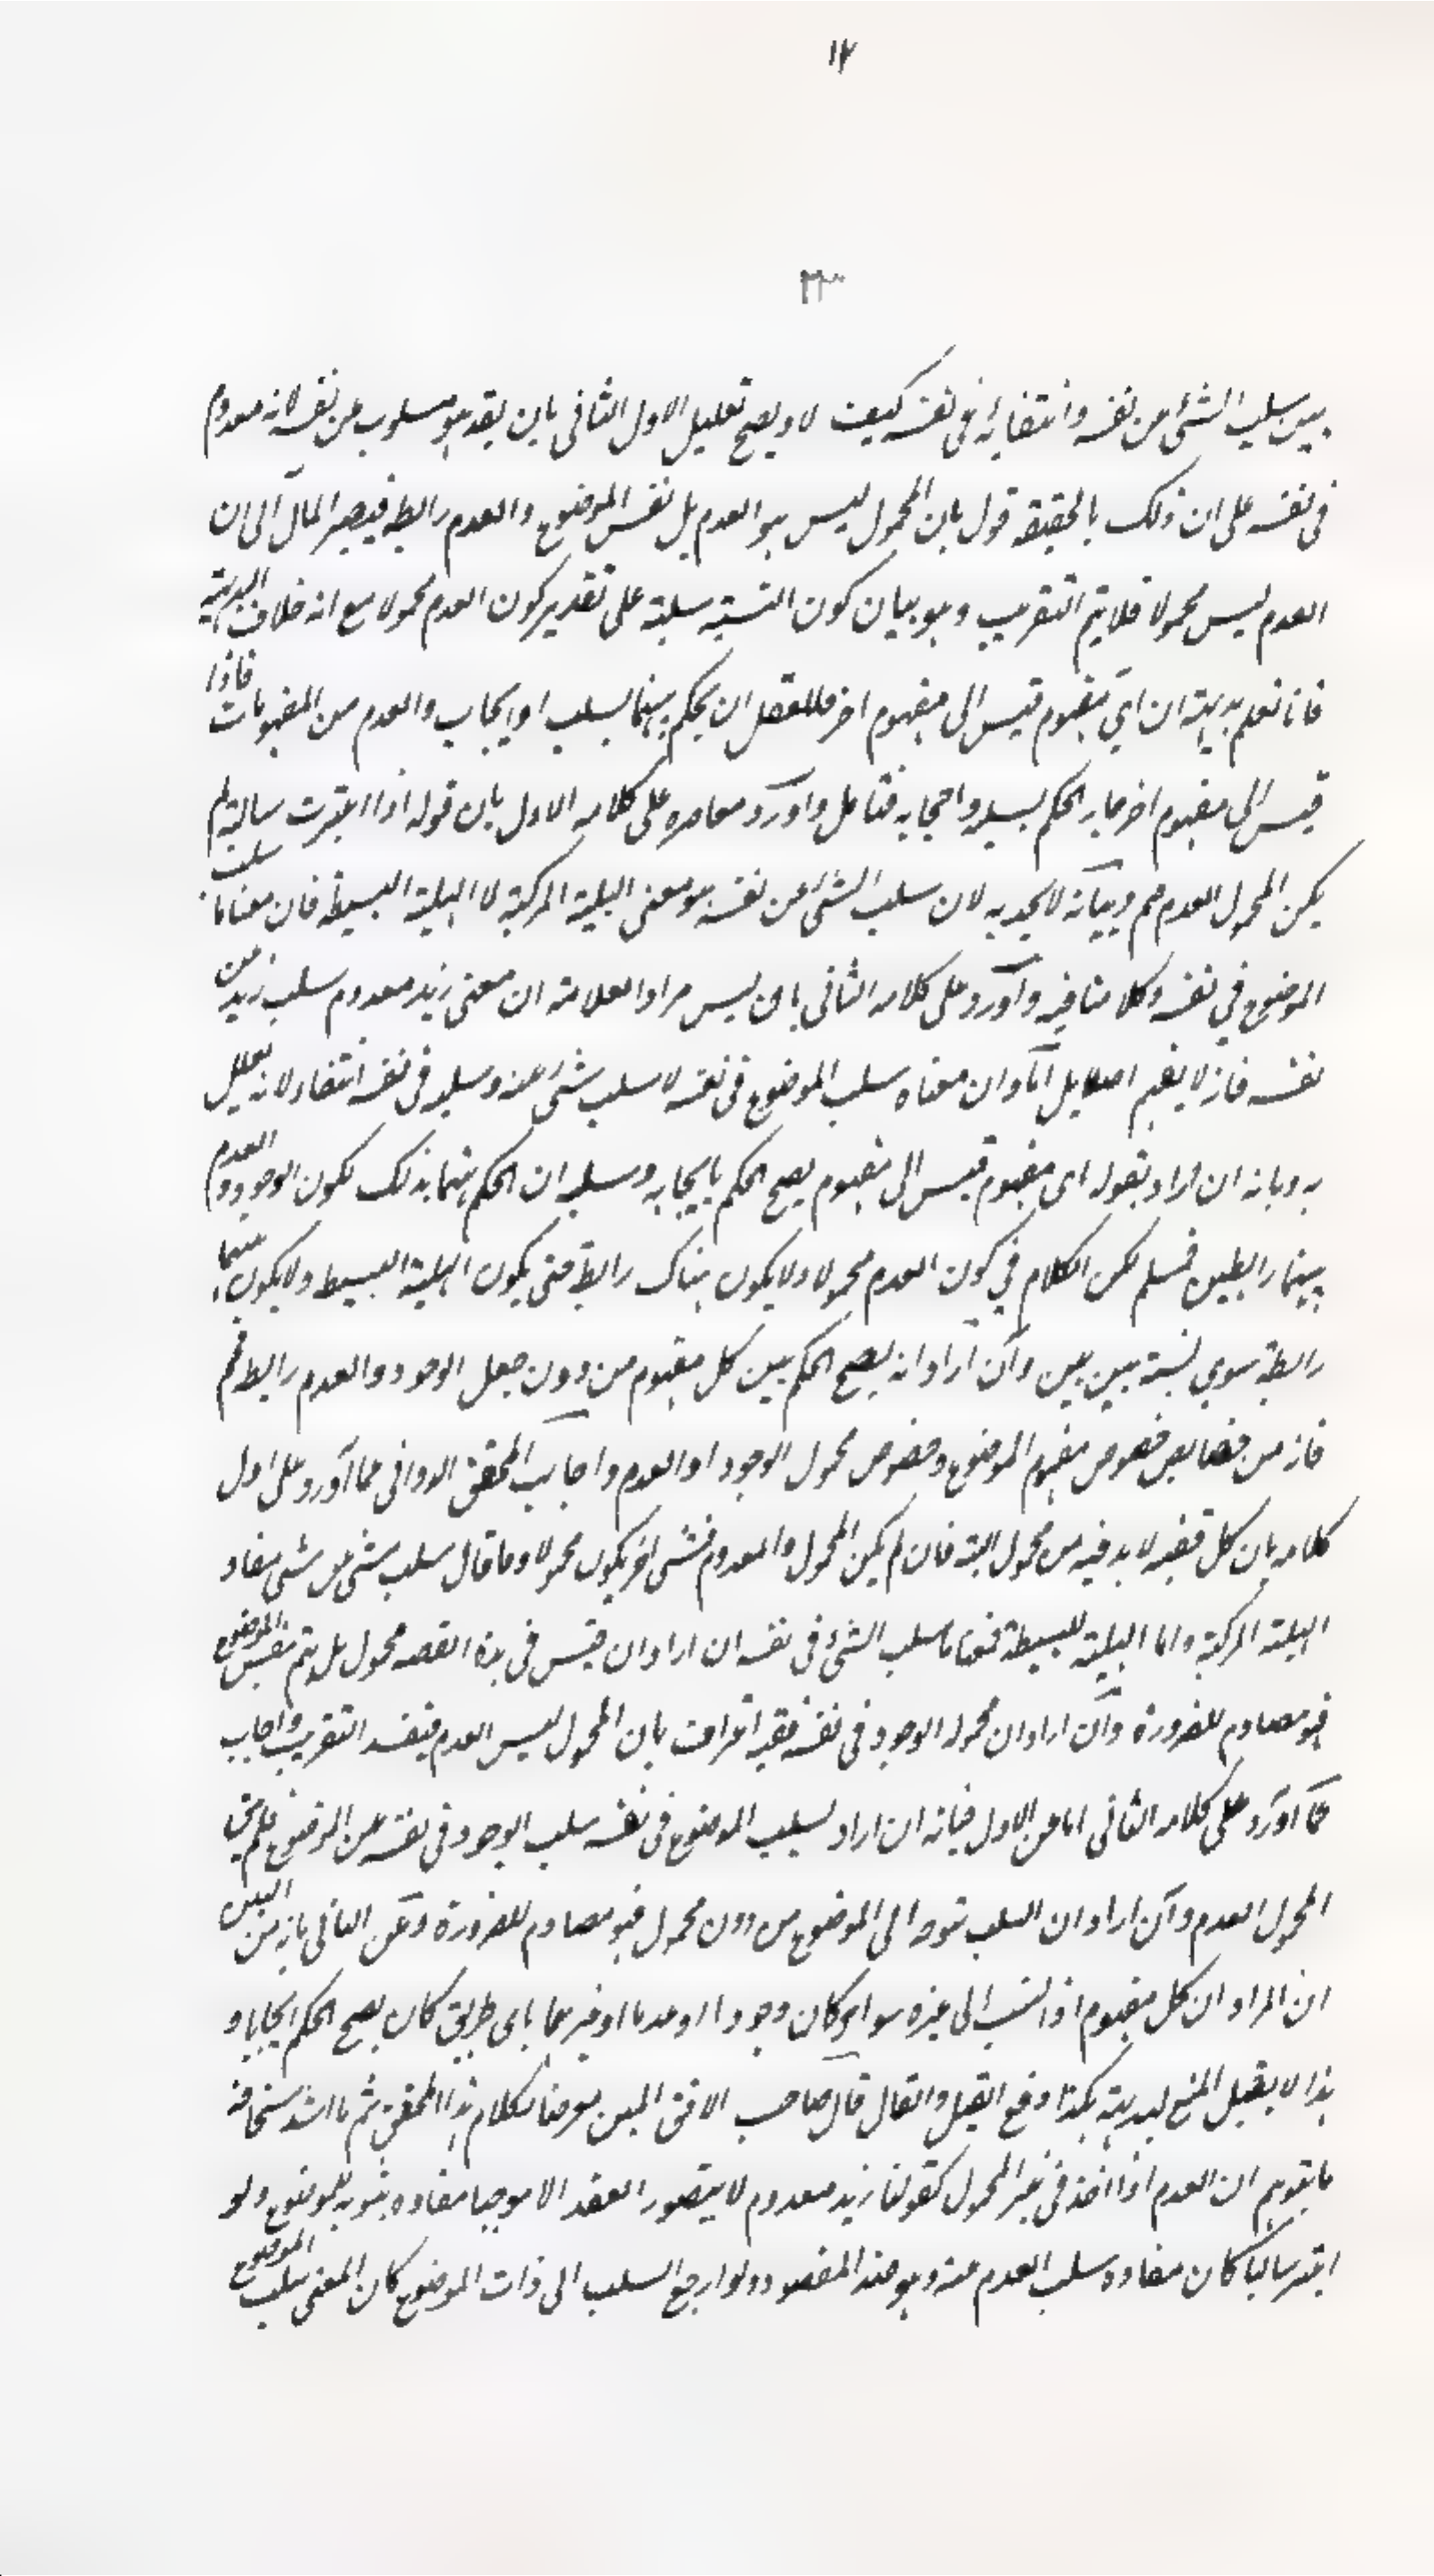 ١٧
٢٣
بين سلب الشئ عن نفسه وانتفائه فى نفسه كيف لا ويصح تعليل الاول الثانى بان يقد هو مسلوب عن نفسه لانه معدوم
فى نفسه على ان ذلك بالحقيقة قول بان المحمول ليس هو العدم بل نفس الموضوع والعدم رابطة فيصير المآل الى ان
العدم ليس محمولا فلا يتم التقريب وهو بيان كون النسبة سلبية على تقدير كون العدم محمولا مع انه خلاف البديهة
فانا نعلم بديهة ان اى مفهوم قيس الى مفهوم اخر فللعقل ان يحكم بينهما بسلب او ايجاب والعدم من المفهومات فاذا
قيس الى مفهوم اخر جاز الحكم بسلبه وايجابه فتامل واورد معاصره على كلامه الاول بان قوله اذا اعتبرت سالبة لم
يكن المحمول العدم مم وبيانه لا يجديه لان سلب الشئ عن نفسه هو معنى الهلية المركبة لا الهلية البسيطة فان معناها سلب
الموضوع فى نفسه وكلامنا فيه واورد على كلامه الثانى بان ليس مراد العلامة ان معنى زيد معدوم سلب زيد عن
نفسه فانه لا يفهم اصلا بل اراد ان معناه سلب الموضوع فى نفسه لا سلب شئ عنه وسلبه فى نفسه انتفاء لانه يعلل
به وبانه ان اراد بقوله اى مفهوم قيس الى مفهوم يصح الحكم بايجابه وسلبه ان الحكم بينهما بذلك بكون الوجود والعدم
بينهما رابطين فسلم لكن الكلام فى كون العدم محمولا ولا يكون هناك رابطة حتى يكون الهلية البسيطة ولا يكون بينهما
رابطة سوى نسبة بين بين وان اراد انه يصح الحكم بين كل مفهوم من دون جعل الوجود والعدم رابطة فمم
فانه من خصايص خصوص مفهوم الموضوع وخصوص محمول الوجود او العدم واجاب المحقق الدوانى عما اورد على اول
كلامه بان كل قضية لا بد فيه من محمول البتة فان لم يكن المحمول والمعدوم فشئ اخر يكون محمولا وما قال سلب شئ عن شئ مفاد
الهلية المركبة واما الهلية البسيطة فمعناها سلب الشئ فى نفسه ان اراد ان ليس فى هذه القضية محمول بل يتم بنفس الموضوع
فهو مصادم للضرورة وان اراد ان محموله الوجود فى نفسه فقيه اعتراف بان المحمول ليس العدم فيفسد التقريب واجاب
عما اورد على كلامه الثانى اما عن الاول فبانه ان اراد بسلب الموضوع فى نفسه سلب الوجود فى نفسه عن الموضوع فلم يكن
المحمول العدم وان اراد ان السلب متوجه الى الموضوع من دون محمول فهو مصادم للضرورة وعن الثانى بانه من البين
ان المراد ان كل مفهوم اذا نسب الى غيره سواء كان وجودا او عدما او غيرهما باى طريق كان يصح الحكم ايجابا و
هذا لا يقبل المنع لبديهته هكذا وقع القيل والقال قال صاحب الافق المبين معرضا لكلام هذا المحقق ثم ما اشد سخافة
ما يتوهم ان العدم اذا اخذ فى حيز المحمول كقولنا زيد معدوم لا يتصور العقد الا موجبا مفاده ثبوته للموضوع ولو
اعتبر سالبا كان مفاده سلب العدم عنه وهو ضد المقصود ولو ارجع السلب الى ذات الموضوع كان المعنى سلب الموضوع